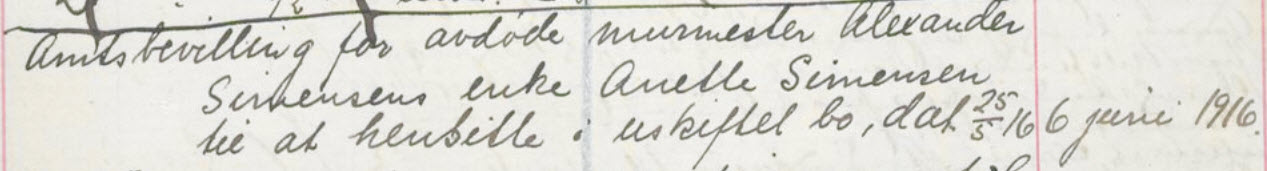 Amtsbevilling for avdöde murmester Alexander
Simensens enke Anette Simensen
til at hensitte i uskiftet bo, dat 25/5 16 6 juni 1916.